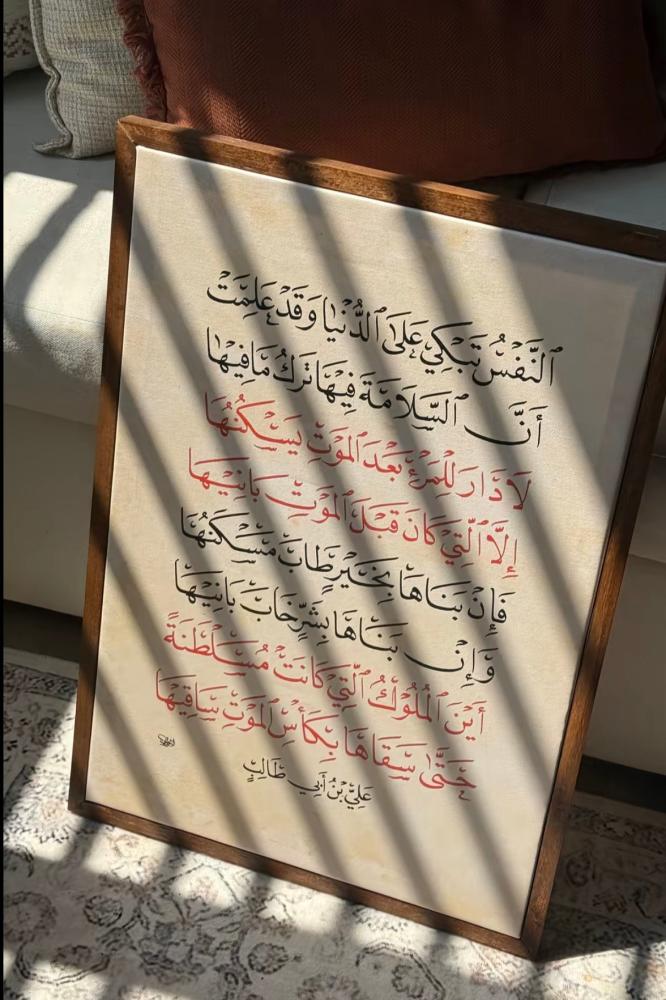 النَّفْسُ تَبْكِي عَلَى الدُّنْيَا وَقَدْ عَلِمَتْ
أَنَّ السَّلَامَةَ فِيهَا تَرْكُ مَا فِيهَا
لَا دَارَ لِلْمَرْءِ بَعْدَ الْمَوْتِ يَسْكُنُهَا
إِلَّا الَّتِي كَانَ قَبْلَ الْمَوْتِ بَانِيْهَا
فَإِنْ بَنَاهَا بِخَيْرٍ طَابَ مَسْكَنُهَا
وَإِنْ بَنَاهَا بِشَرٍّ خَابَ بَانِيْهَا
أَيْنَ الْمُلُوكُ الَّتِي كَانَتْ مُسَلْطَنَةً
حَتَّى سَقَاهَا بِكَأْسِ الْمَوْتِ سَاقِيهَا
عَلِيُّ بْنُ أَبِي طَالِبٍ